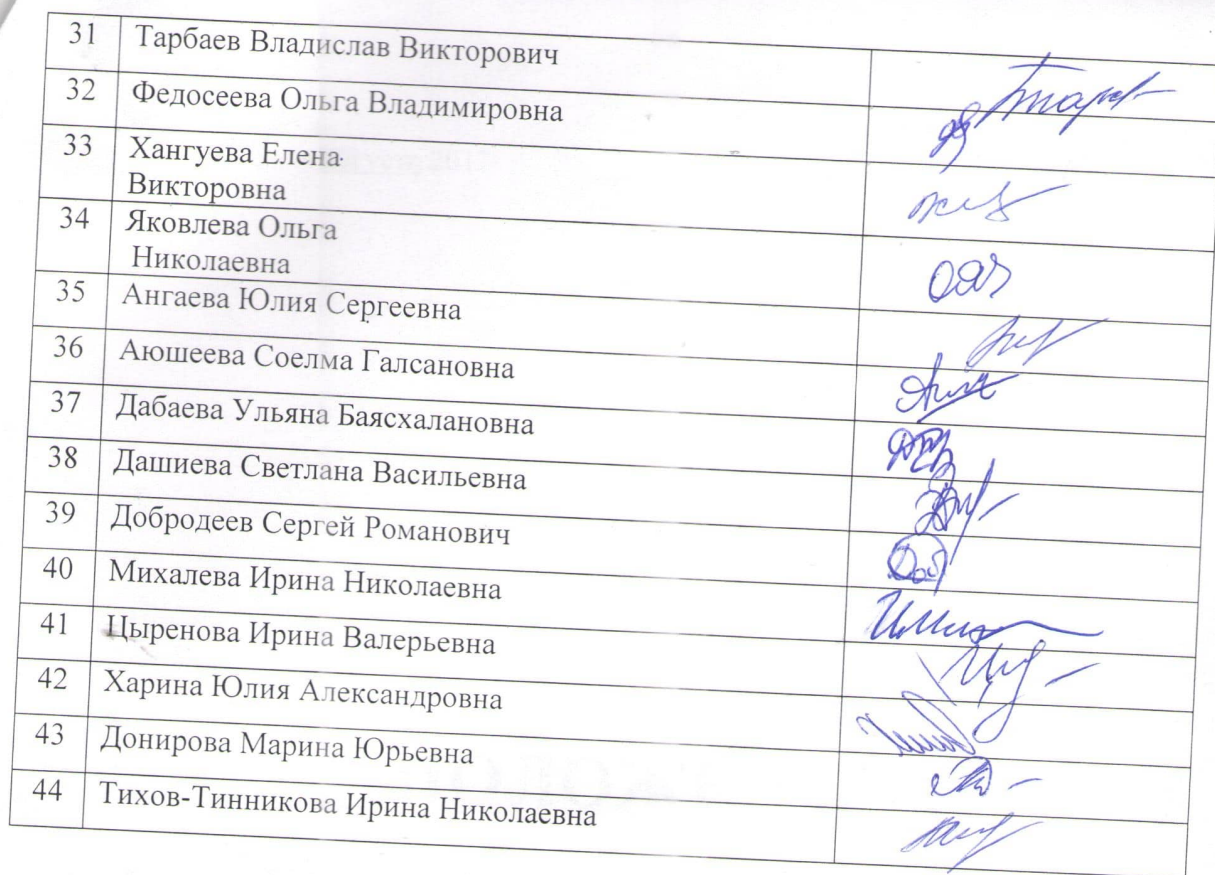 31 Тарбаев Владислав Викторович
32 Федосеева Ольга Владимировна
33 Хангуева Елена
Викторовна
34 Яковлева Ольга
Николаевна
35 Ангаева Юлия Сергеевна
36 Аюшеева Соелма Галсановна
37 Дабаева Ульяна Баясхалановна
38 Дашиева Светлана Васильевна
39 Добродеев Сергей Романович
40 Михалева Ирина Николаевна
41 Цыренова Ирина Валерьевна
42 Харина Юлия Александровна
43 Донирова Марина Юрьевна
44 Тихов-Тинникова Ирина Николаевна